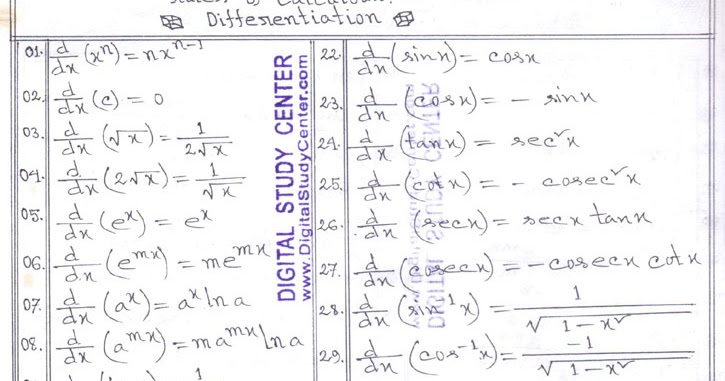 Rules of Calculus:
Differentiation
01. d/dx (xⁿ) = nxⁿ⁻¹
02. d/dx (c) = 0
03. d/dx (√x) = 1/2√x
04. d/dx (2√x) = 1/√x
05. d/dx (eˣ) = eˣ
06. d/dx (eᵐˣ) = meᵐˣ
07. d/dx (aˣ) = aˣ ln a
08. d/dx (aᵐˣ) = maᵐˣ ln a
DIGITAL STUDY CENTER
www.DigitalStudyCenter.com
22. d/dx (sinx) = cosx
23. d/dx (cosx) = - sinx
24. d/dx (tanx) = sec²x
25. d/dx (cotx) = - cosec²x
26. d/dx (secx) = secx tanx
27. d/dx (cosecx) = -cosecx cotx
28. d/dx (sin⁻¹x) = 1/√1-x²
29. d/dx (cos⁻¹x) = -1/√1-x²